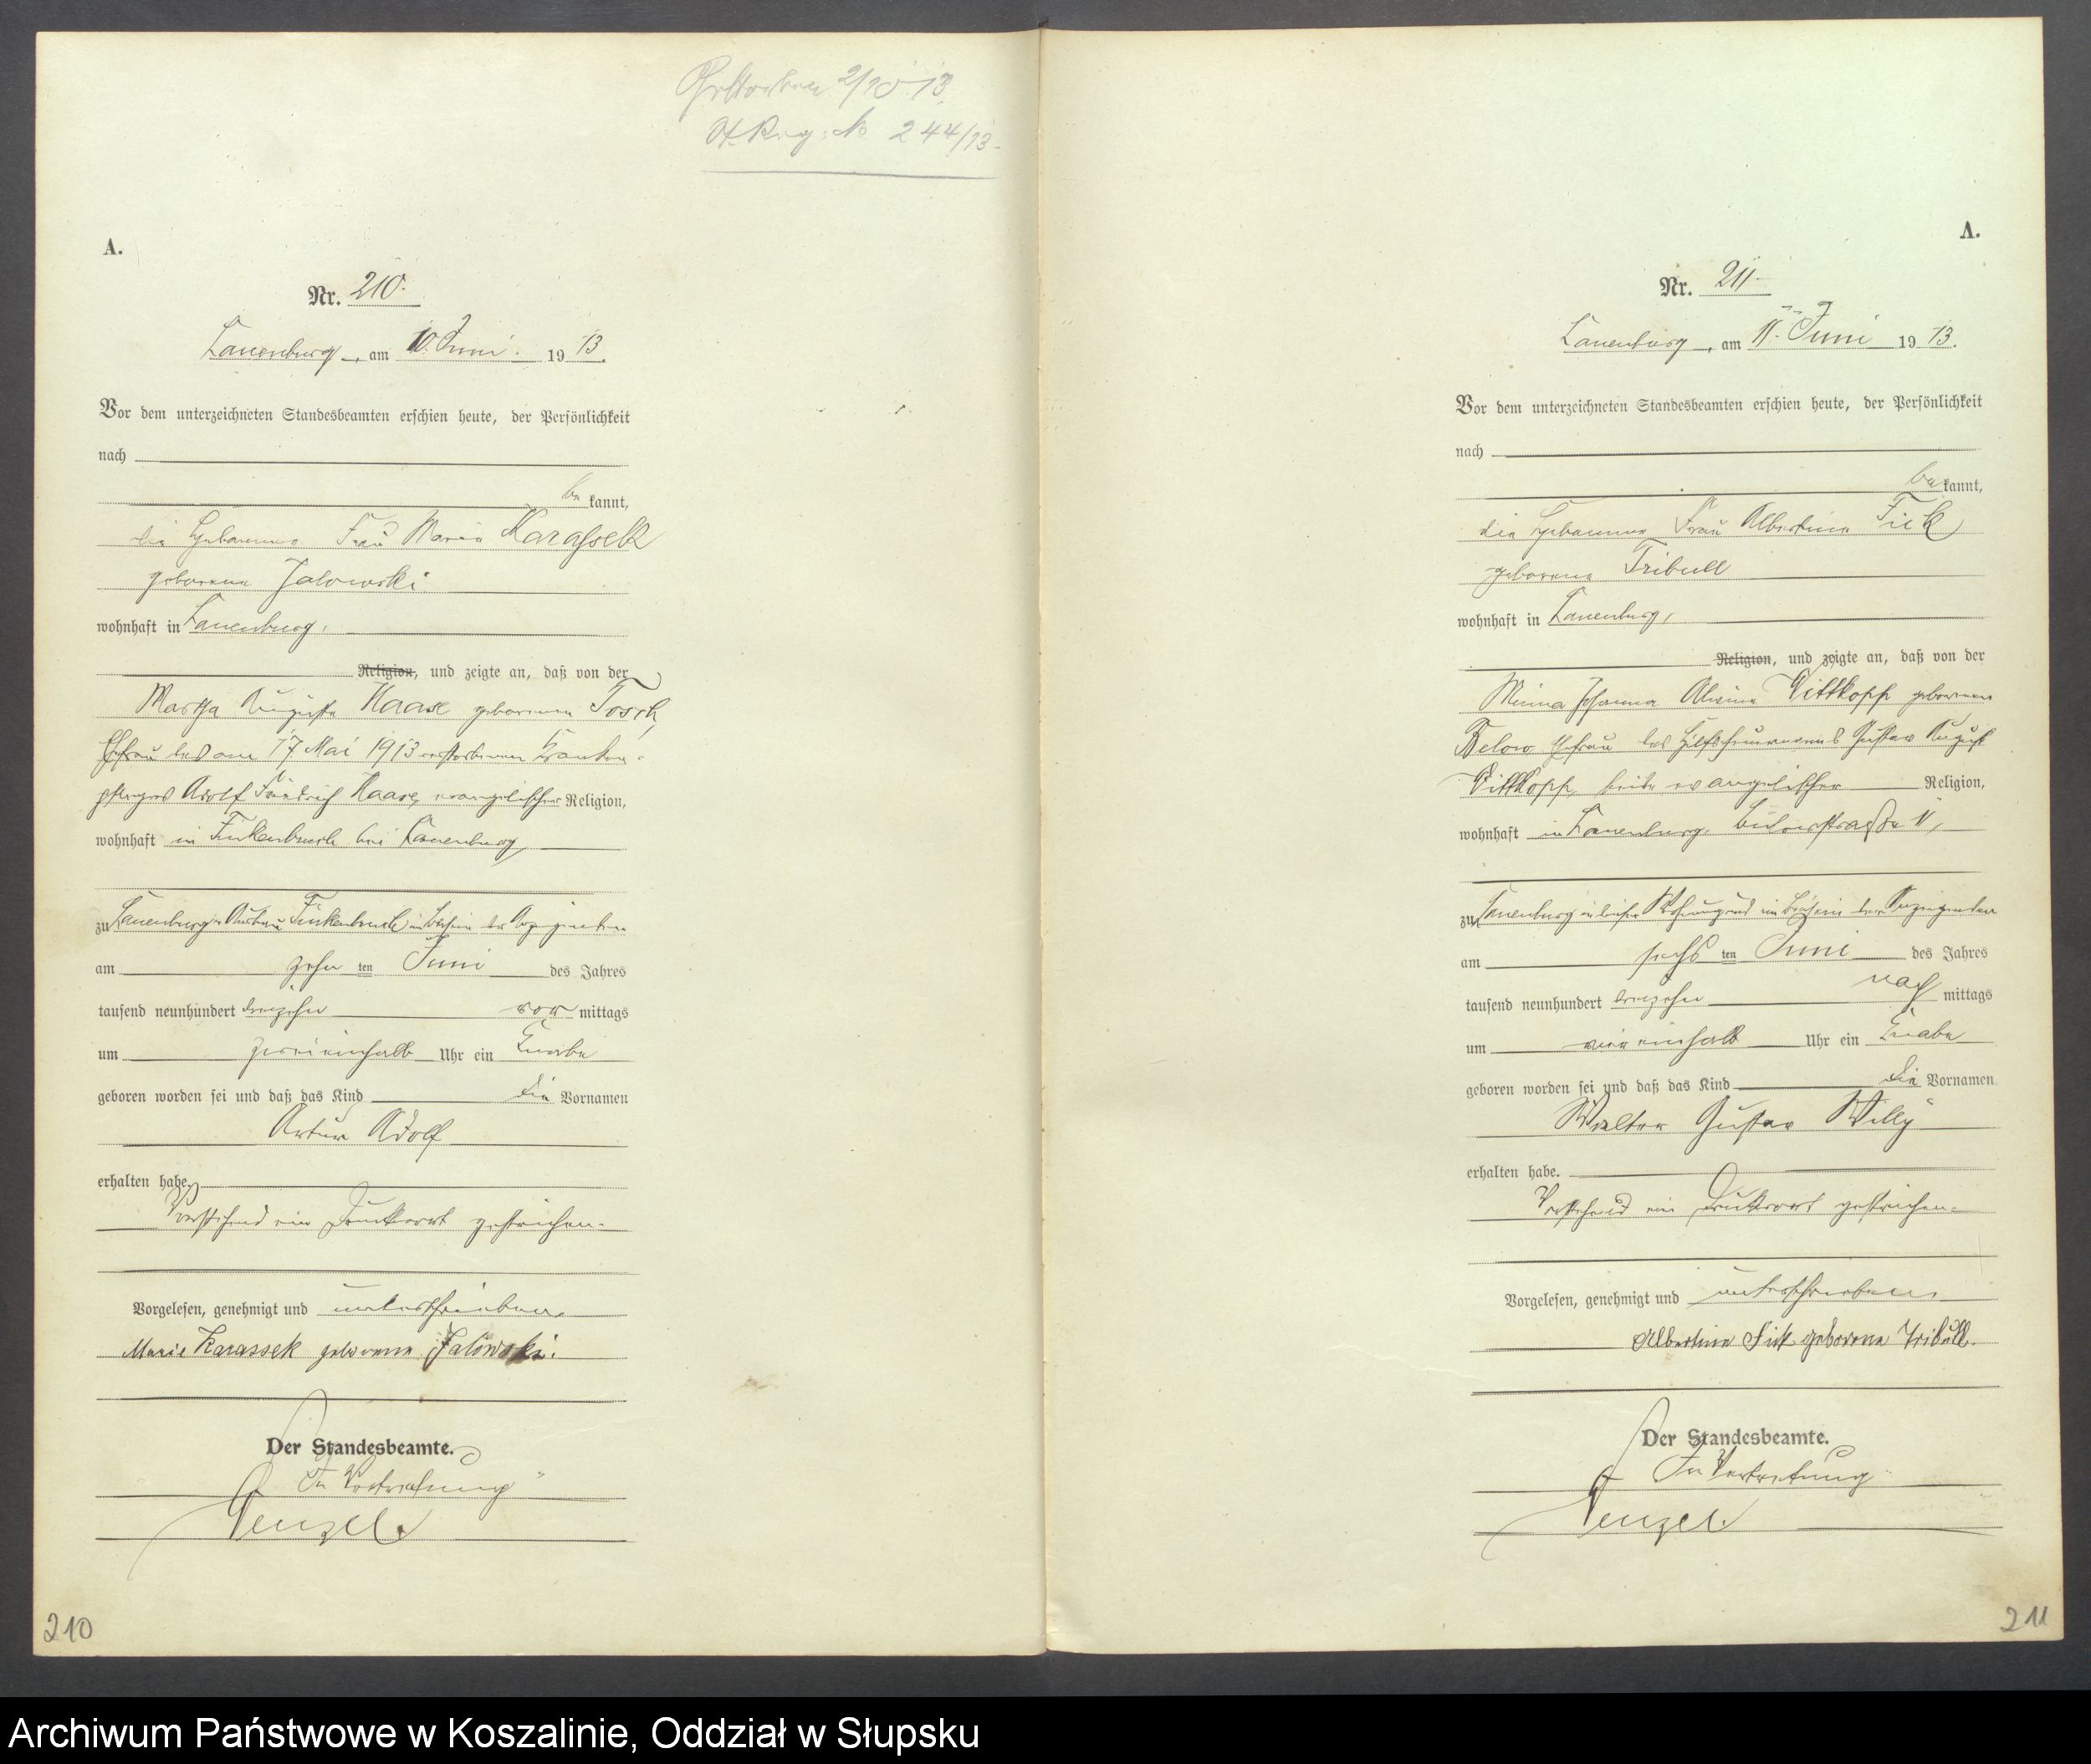 Gestorben 2/10.13.
St. Reg. No 244/13.
A.
Nr. 210.
Lauenburg, am 10. Juni 1913.
Vor dem unterzeichneten Standesbeamten erschien heute, der Persönlichkeit
nach
bekannt,
die Hebamme Frau Marie Karassek
geborene Jalowski
wohnhaft in Lauenburg,
Religion, und zeigte an, daß von der
Martha Auguste Haase geborenen Tosch,
Ehefrau des am 17 Mai 1913 verstorbenen Kranken-
pflegers Adolf Friedrich Haase, evangelischer Religion,
wohnhaft in Finkenbruch bei Lauenburg,
zu Lauenburg Ausbau Finkenbruch in Beisein der Anzeigenden
am zehnten Juni des Jahres
tausend neunhundert dreizehn vormittags
um zweieinhalb Uhr ein Knabe
geboren worden sei und daß das Kind die Vornamen
Artur Adolf
erhalten habe.
Vorstehend ein Druckwort gestrichen.
Vorgelesen, genehmigt und unterschrieben.
Marie Karassek geborene Jalowski.
Der Standesbeamte.
In Vertretung
Wenzel.
210
A.
Nr. 211
Lauenburg, am 11. Juni 1913.
Vor dem unterzeichneten Standesbeamten erschien heute, der Persönlichkeit
nach
bekannt,
die Hebamme Frau Albertine Fick
geborene Tribull
wohnhaft in Lauenburg,
Religion, und zeigte an, daß von der
Minna Johanna Alwine Vittkopp geborenen
Below Ehefrau des Gustav August
Vittkopp, beide evangelischer Religion,
wohnhaft in Lauenburg, Bütowerstraße 11,
zu Lauenburg in dieser Wohnung und im Beisein der Anzeigenden
am sechsten Juni des Jahres
tausend neunhundert dreizehn nachmittags
um viereinhalb Uhr ein Knabe
geboren worden sei und daß das Kind die Vornamen
Walter Gustav Willy
erhalten habe.
Vorstehend ein Druckwort gestrichen.
Vorgelesen, genehmigt und unterschrieben.
Albertine Fick geborene Tribull.
Der Standesbeamte.
In Vertretung
Wenzel.
211
Archiwum Państwowe w Koszalinie, Oddział w Słupsku